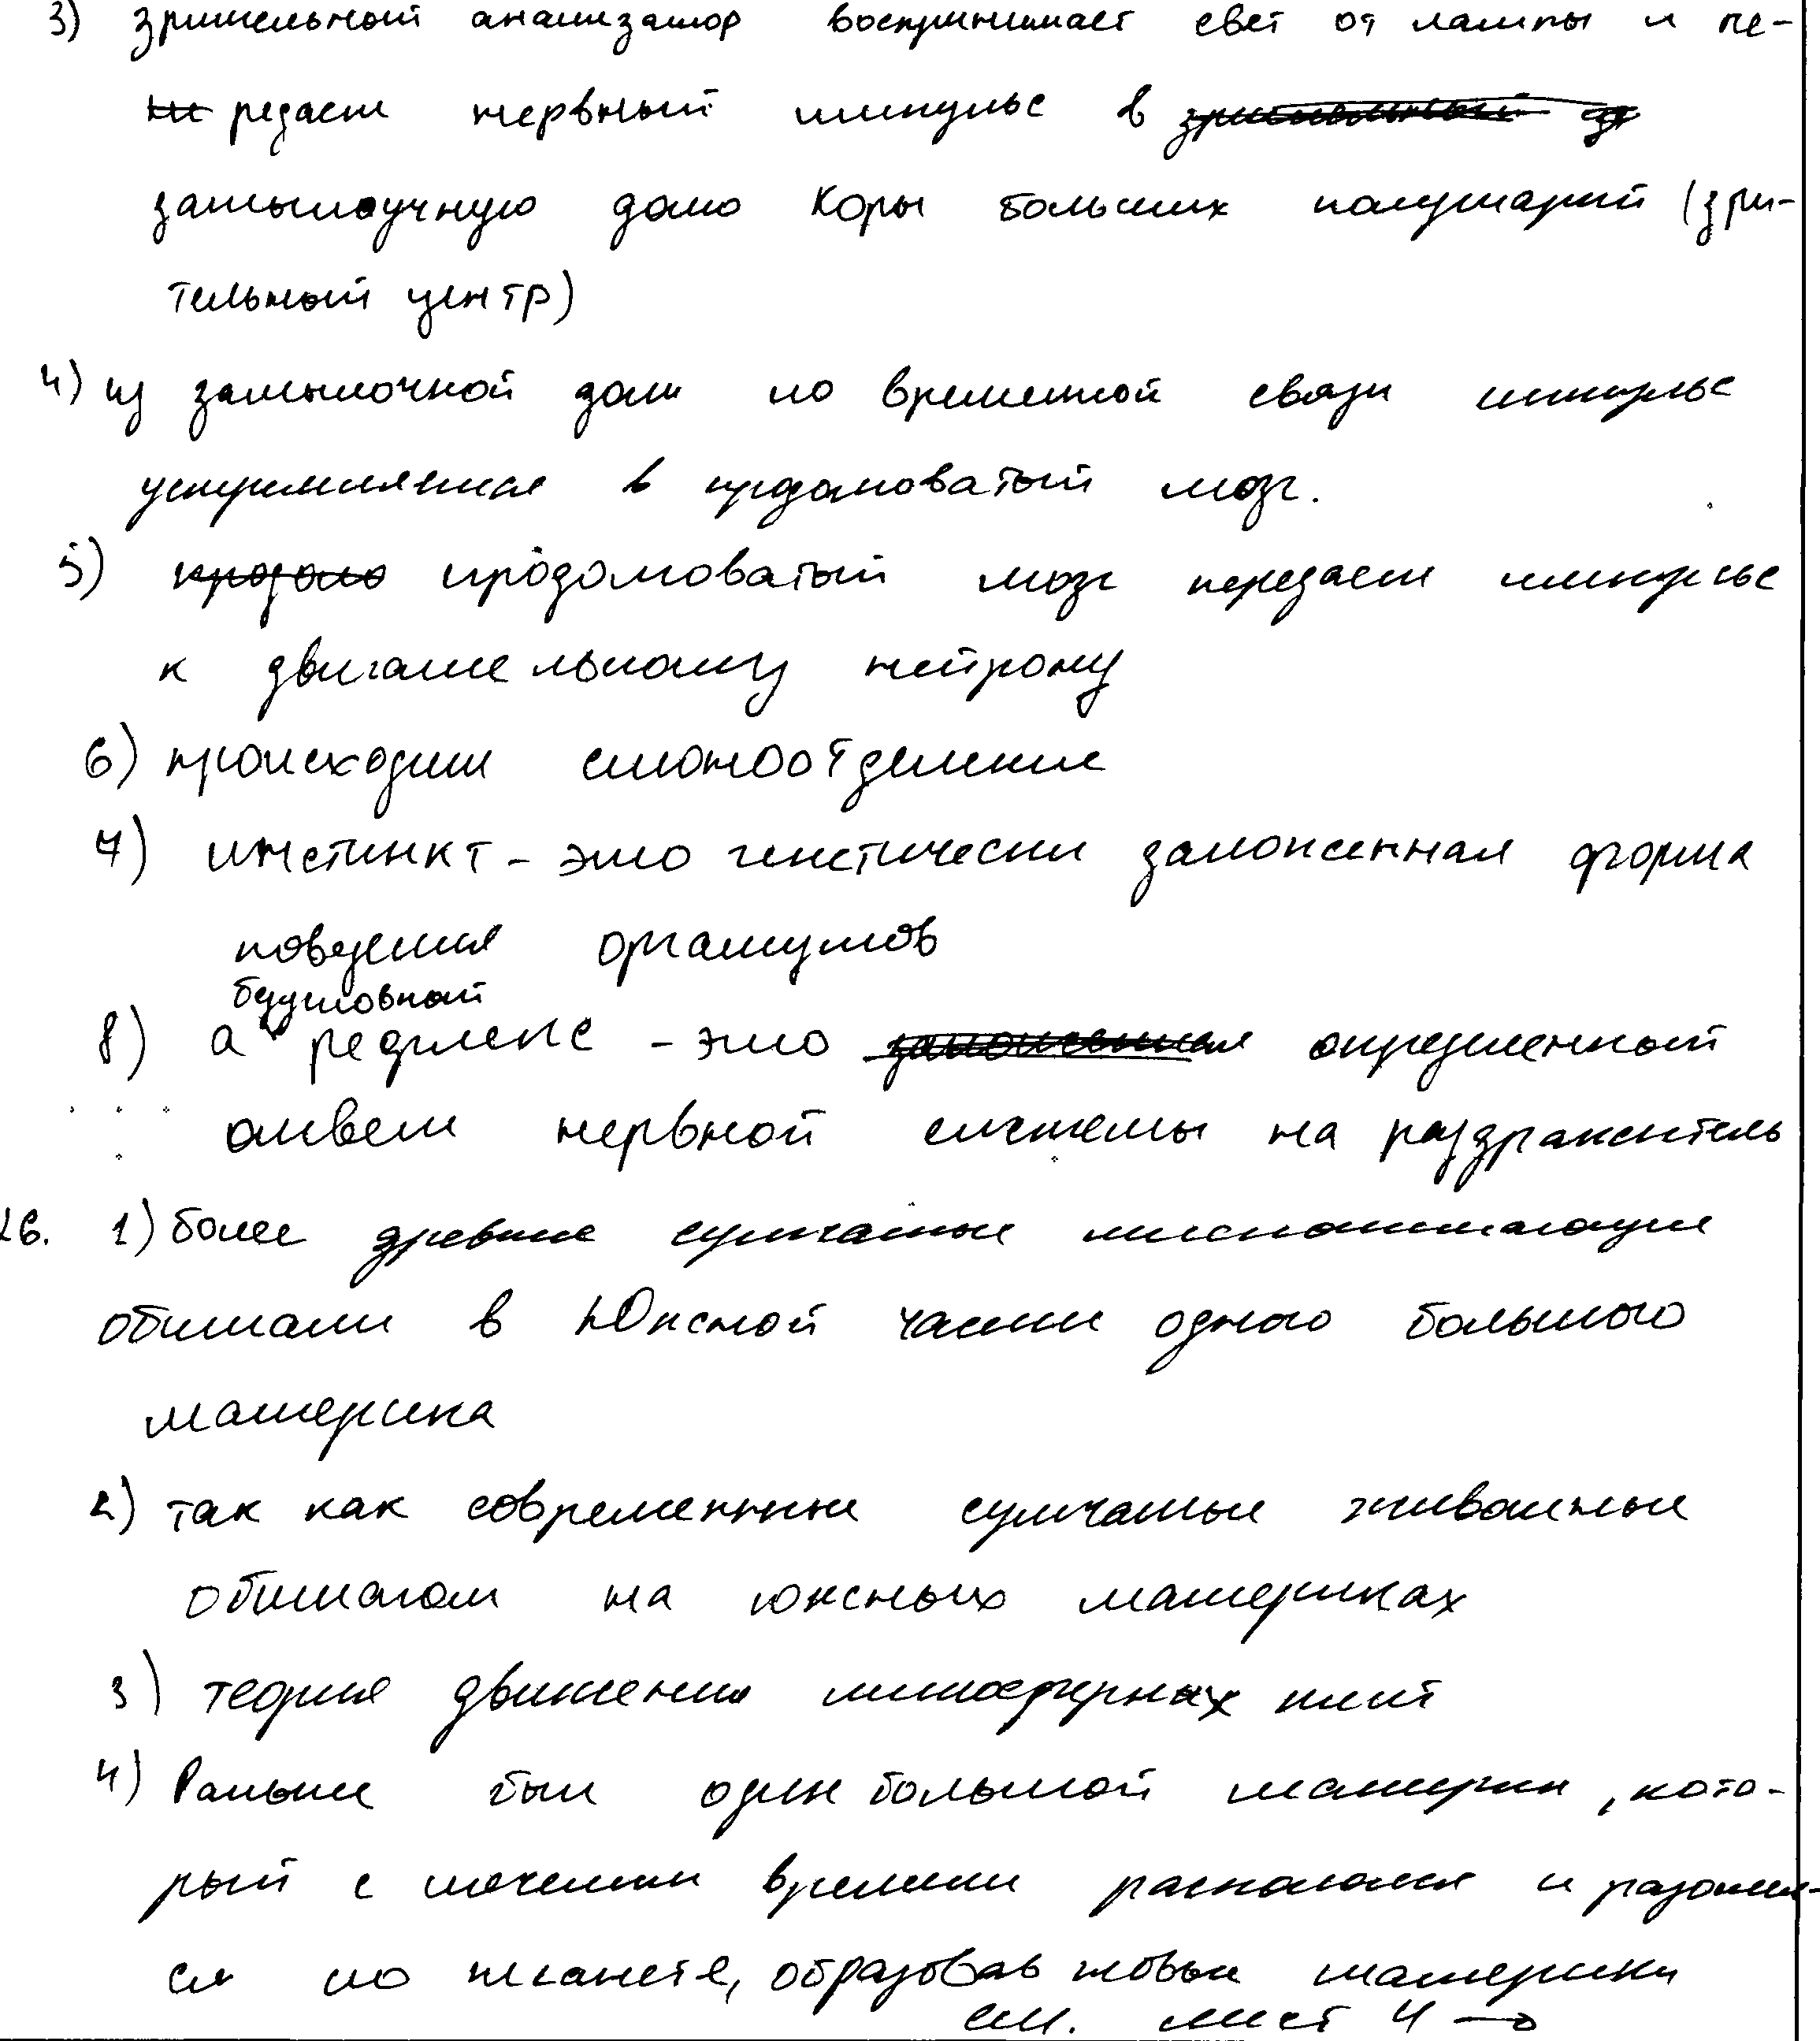 3) зрительный анализатор воспринимает свет от лампы и пе-
редает нервный импульс в
затылочную долю Коры больших полушарий (зри-
тельный центр)
4) из затылочной доли по временной связи импульс
устремляется в продолговатый мозг.
5) продолговатый мозг передает импульс
к двигательному нейрону
6) происходит слюноотделение
7) инстинкт - это генетически заложенная форма
поведения организмов
безусловный
8) а рефлекс - это определенный
ответ нервной системы на раздражитель
26. 1) более древние сумчатые млекопитающие
обитали в Южной части одного большого
материка
2) так как современные сумчатые животные
обитают на южных материках
3) теория движения литосферных плит
4) Раньше был один большой материк, кото-
рый с течением времени раскололся и разошел-
ся по планете, образовав новые материки
см. лист 4 →